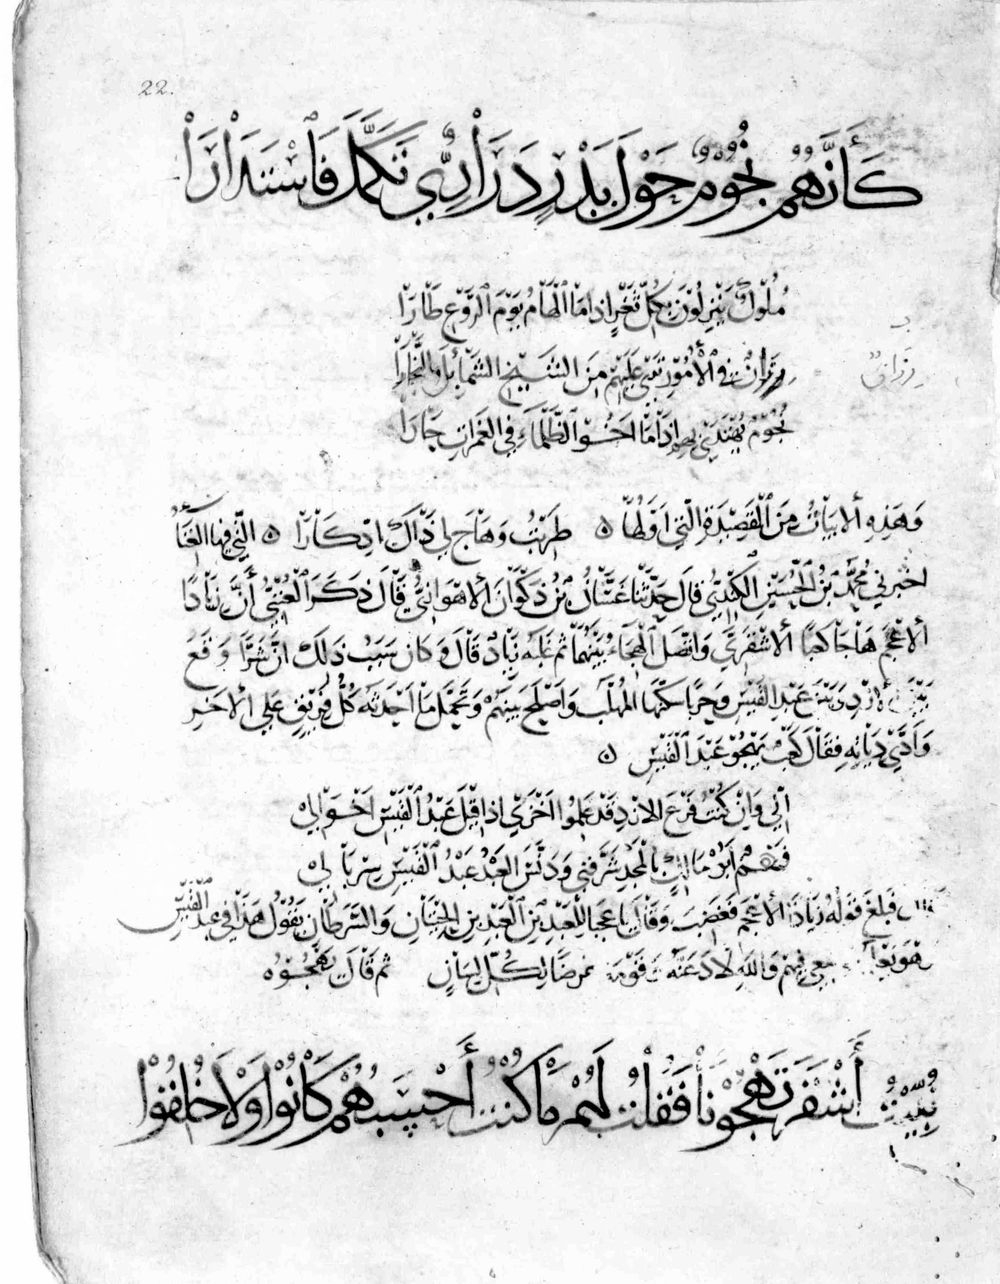 22.
كَأَنَّهُمُ نُجُومٌ حَوْلَ بَدْرٍ دَرَارِيٌّ تَكَمَّلَ فَاسْتَدَارَا
مُلُوكٌ يَنْزِلُونَ بِكُلِّ ثَغْرٍ اذا مَا الْهَامُ يَوْمَ الرَّوْعِ طَارَا
رزان في الْأُمُورِ تَرى عَلَيْهِمْ مِنَ الشَّيْخِ الشَّمَائِلَ وَالنِّجَارَا
رزان
نُجُومٌ يُهْتَدَى بِهِمِ إِذَا مَا اخو الظَّلْمَاءِ فِي الغَمَرَاتِ حَارَا
وَهَذِهِ الابيَاتُ مِنَ الْقَصِيدَةِ الَّتِي اوّلُهَا ۞ طَرِبْتُ وَهَاجَ لِي ذَاكَ ادّكَارَا ۞ الَّتِي فيها الغنَاء
اخبرني مُحَمَّدُ بْنُ الْحُسَيْنِ الْكِنْدِيُّ قال حَدَّثَنَا غَسَّانُ بْنُ ذَكْوَانَ الاهْوَازِيُّ قَالَ ذَكَرَ الْعُتْبِيُّ أَنَّ زِيَادًا
الاعْجَمَ هَاجَا كَعْبًا الاشْقَرِيَّ وَاتّصَلَ الْهِجَاءُ بَيْنَهُمَا ثم غَلَبَهُ زِيَادٌ قَالَ وَكَانَ سَبَبُ ذَلِكَ انَّ شَرًّا وَقَعَ
بَيْنَ الازْدِ وَبَيْنَ عَبْدِ القَيْسِ وَحَرْبًا سَكَّنَهَا المُهَلَّبُ وَاصْلَحَ بَيْنَهُمْ وَتَحَمَّلَ مَا احْدَثَهُ كُلُّ فَرِيقٍ عَلى الاخَرِ
وَادَّى دِيَاتِهِ فَقَالَ كَعْبٌ يَهْجُو عَبْدَ الْقَيْسِ ۞
اني وَإنْ كُنْتُ فَرْعَ الازْدِ قَدْ عَلِمُوا اخْزَى اذا قِيلَ عَبْدُ الْقَيْسِ اخْوَالِي
فَهُمْ أبُو مَالِكٍ بالمَجْدِ شَرَّفَنِي وَدَنَّسَ العَبْدُ عَبْدُ الْقَيْسِ سِرْبَالِي
قال فَبَلَغَ قَوْلُهُ زِيَادًا الاعْجَمَ فَغَضِبَ وَقَالَ يَا عَجَبًا لِلْعَبْدِ بْنِ الْعَبْدِ بن الحِيتَانِ وَالسَّرَطَانِ يَقُولُ هَذَا في عبد الْقَيْسِ
وَهُوَ يعلم مَوْضعي فيهِمْ وَاللهِ لَادَعَنَّهُ وَقَوْمَهُ غَرَضًا لِكُلِّ لِسَانٍ ثم قَالَ يَهْجُوهُ
نُبِّيتُ أَشْقَرَ تَهْجُونَا فَقُلْتُ لَهُمْ مَا كُنْتُ أَحْسِبُهُمْ كَانُوا وَلَا خُلِقُوا